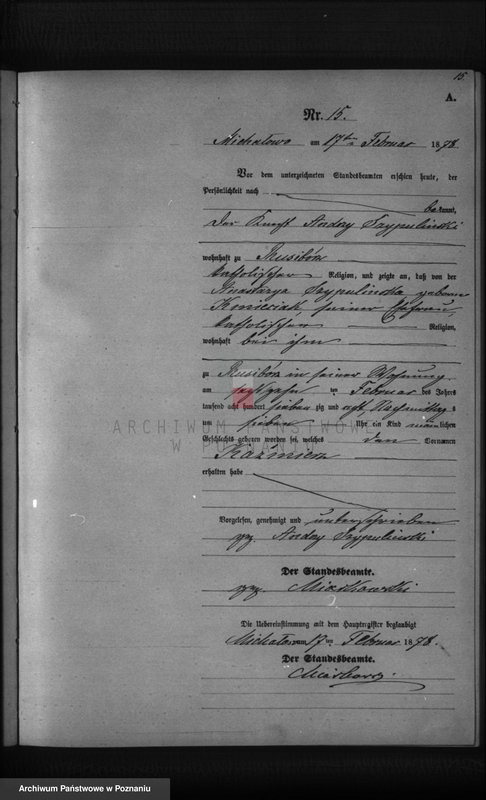 15.
A.
Nr. 15.
Michalowo am 17ten Februar 1878.
Vor dem unterzeichneten Standesbeamten erschien heute, der
Persönlichkeit nach
bekannt,
der Andrzej Szypulinski
wohnhaft zu Rusiborz
katholischer Religion, und zeigte an, daß von der
Szypulinska geborene
seiner Ehefrau,
katholischer Religion,
wohnhaft bei ihm
zu Rusiborz in seiner Wohnung
am sechszehn ten Februar des Jahres
tausend acht hundert sieben zig und acht, Nachmittags
um sieben Uhr ein Kind männlichen
Geschlechts geboren worden sei, welches den Vornamen
Kaźmierz
erhalten habe
Vorgelesen, genehmigt und unterschrieben
gez. Andrzej Szypulinski
Der Standesbeamte.
gez.
Die Uebereinstimmung mit dem Hauptregister beglaubigt
Michalowo am 17 ten Februar 1878.
Der Standesbeamte.
ARCHIWUM PAŃSTWOWE
W POZNANIU
Archiwum Państwowe w Poznaniu